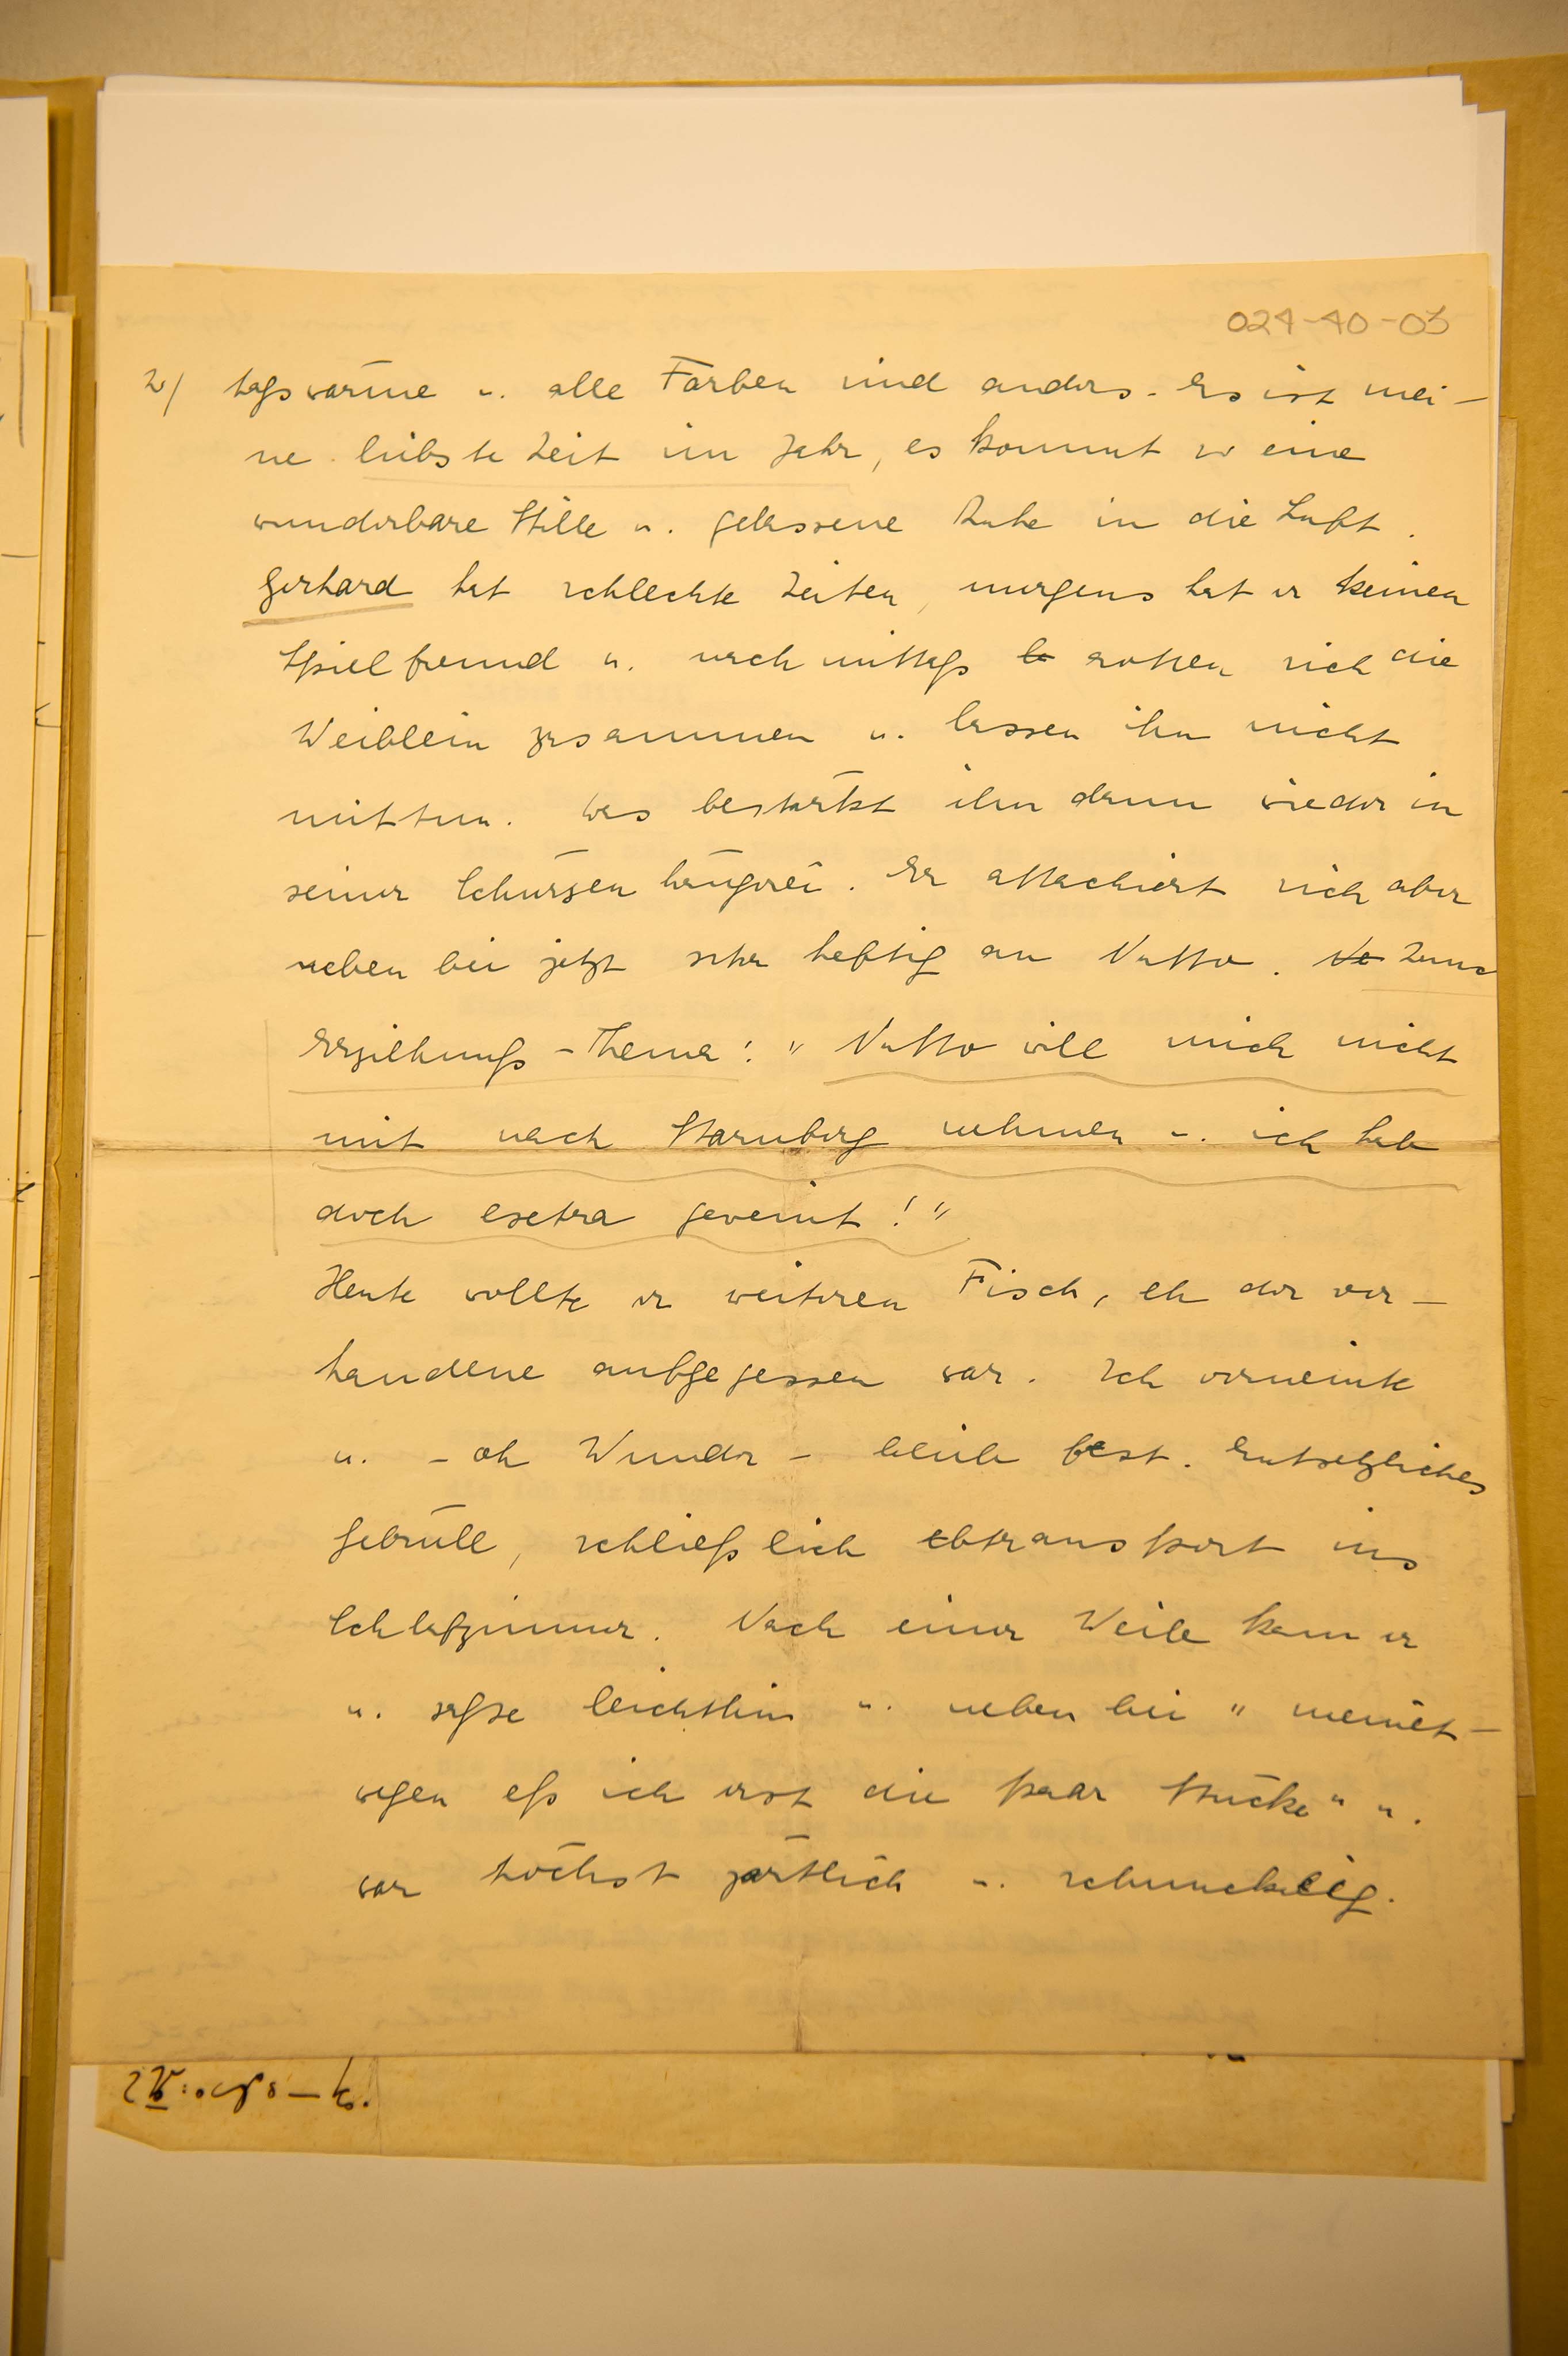 024-40-03
2/ tagswärme u. alle Farben sind anders. Es ist mei-
ne liebste Zeit im Jahr, es kommt so eine
wunderbare Stille u. gelassene Ruhe in die Luft.
Gerhard hat schlechte Zeiten, morgens hat er keinen
Spielfreund u. nachmittags rotten sich die
Weiblein zusammen u. lassen ihn nicht
mittun. Das bestärkt ihn dann wieder in
seiner Schürzenhängerei. Er attachiert sich aber
nebenbei jetzt sehr heftig an Vatto. Zum
Erziehungs-Thema: "Vatto will mich nicht
mit nach Starnberg nehmen u. ich hab
doch esetra geweint!"
Heute wollte er weiteren Fisch, eh der vor-
handene aufgegessen war. Ich verneinte
u. - oh Wunder - blieb fest. Entsetzliches
Gebrüll, schließlich Abtransport ins
Schlafzimmer. Nach einer Weile kam er
u. sagte leichthin u. nebenbei "meinet-
wegen eß ich erst die paar Stücke" u.
war höchst zärtlich u. schmuckelig.